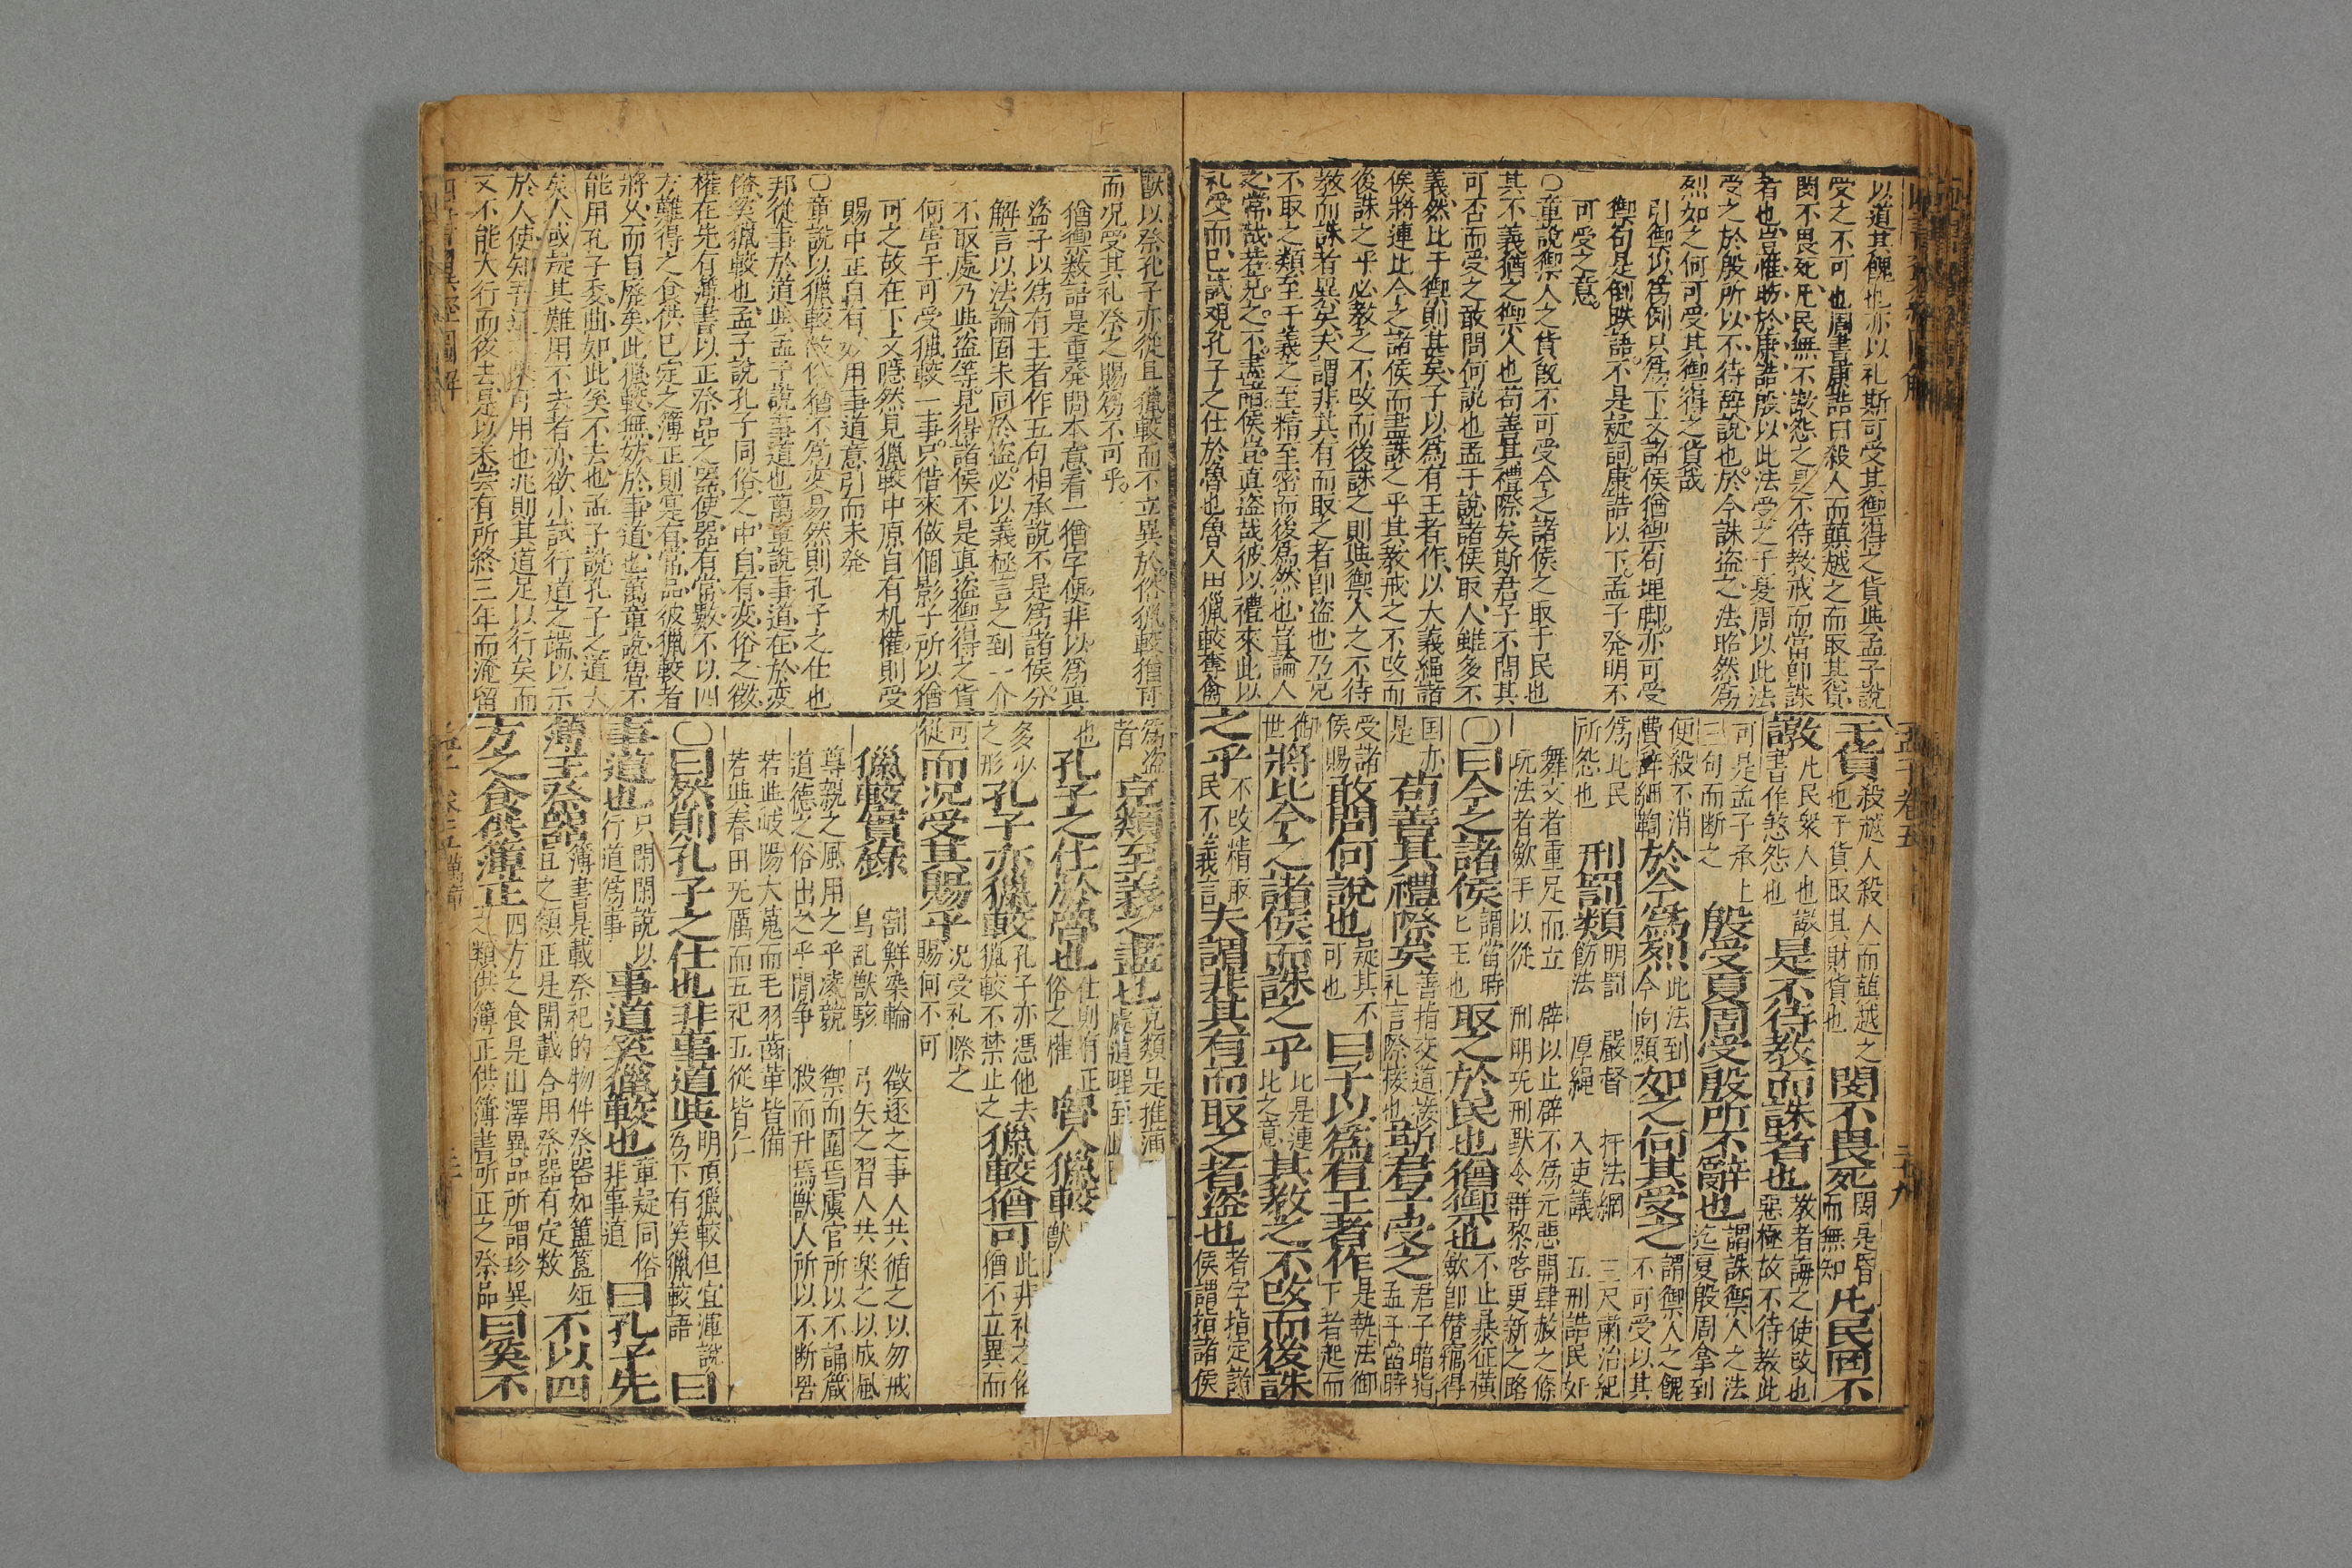 以道其餽也亦以礼斯可受其禦得之貨與孟子說
受之不可也周書康誥曰殺人而顛越之而取其貨
閔不畏死凡民無不譈怨之是不待教戒而當即誅
者也豈惟昉於康誥殷以此法受之于夏周以此法
受之於殷所以不待辞說也於今誅盜之法昭然為
烈如之何可受其禦得之貨哉
引禦以為例只為下文諸侯猶禦句埋脚亦可受
禦句是倒跌語不是疑詞康誥以下孟子発明不
可受之意
○童說禦人之貨既不可受今之諸侯之取于民也
其不義猶之禦人也苟善其禮際矣斯君子不問其
可否而受之敢問何說也孟子說諸侯取人雖多不
義然比于禦則甚矣子以為有王者作以大義繩諸
侯將連比今之諸侯而盡誅之乎其教戒之不改而
後誅之乎必教之不改而後誅之則與禦人之不待
教而誅者異矣夫謂非其有而取之者即盜也乃充
不取之類至于義之至精至密而後為然也豈論人
之常哉若充之不盡諸侯豈真盜哉彼以禮來此以
礼受而已試观孔子之仕於魯也魯人田獵較奪禽
于貨殺越人殺人而顛越之也于貨取其財貨也閔不畏死閔是昏而無知凡民罔不
譈凡民衆人也譈書作憝怨也是不待教而誅者也教者誨之使改也惡極故不待教此
可是孟子承上三句而断之殷受夏周受殷所不辭也謂誅禦人之法迄夏殷周拿到
便殺不消費辭細鞫於今為烈此法到今向顯如之何其受之謂禦人之餽不可受以其
為此民所怨也刑罰類明罰飭法嚴督厚繩扞法網入吏議三尺肅治紀五刑誥民奸
舞文者重足而立玩法者歛手以從辟以止辟不為元惡開肆赦之條刑明旡刑獣令群黎啓更新之路
○曰今之諸侯謂當時七王也取之於民也猶禦也不止暴征橫歛即僭竊得
国亦是苟善其禮際矣善指交道礼言際接也斯君子受之君子暗指孟子當時
受諸侯賜敢問何說也疑其不可也曰子以為有王者作是執法御下者起而
御世將比今之諸侯而誅之乎比是連比之意其教之不改而後誅
之乎不改精取民不義言夫謂非其有而取之者盜也者字指定諸侯謂指諸侯
獸以祭孔子亦從且獵較而不立異於俗獵較猶可
而况受其礼祭之賜為不可乎
猶禦数語是重発問本意看一猶字便非以為真
盜子以為有王者作五句相承說不是為諸侯分
解言以法論固未同於盜必以義極言之到一介
不取處乃與盜等見得諸侯不是真盜禦得之貨
何害于可受獵較一事只借來做個影子所以猶
可之故在下文隱然見獵較中原自有机權則受
賜中正自有妙用事道意引而未発
○童說以獵較敝俗猶不為変易然則孔子之仕也
邦從事於道與孟子說事道也萬童說事道在於変
俗奚獵較也孟子說孔子同俗之中自有変俗之微
權在先有簿書以正祭品之器使器有常數不以四
方難得之食供已定之簿正則寔有常品彼獵較者
將久而自廃矣此獵較無妨於事道也萬童說魯不
能用孔子委曲如此奚不去也孟子說孔子之道大
矣人或疑其難用不去者亦欲小試行道之端以示
於人使知吾道果可用也兆則其道足以行矣而
又不能大行而後去是以未尝有所終三年而淹留
為盜者充類至義之盡也充類是推滿處道理至
也孔子之仕於魯也仕則有正俗之權魯人獵較獸
多少之形孔子亦獵較孔子亦憑他去獵較不禁止之獵較猶可此非礼之俗猶不立異而
可從而况受其賜乎况受礼際之賜何不可
獵較實錄割鮮染輪鳥乱獸駭徵逐之事人共循之以勿戒弓矢之習人共楽之以成風
尊親之風用之乎凌競道德之俗出之乎閒争禦而圍焉虞官所以不誦箴殺而升焉獸人所以不断罟
若與岐陽大蒐而毛羽齒革皆備若與春田旡厲而五祀五從皆仁
○曰然則孔子之仕也非事道與明頂獵較但宜渾說為下有奚獵較語曰
事道也只閑閑說以行道為事事道奚獵較也童疑同俗非事道曰孔子先
簿正祭器簿書是載祭祀的物件祭器如簠簋俎豆之類正是開載合用祭器有定数不以四
方之食供簿正四方之食是山澤異品所謂珍異之類供簿正供簿書所正之祭品曰奚不
孟子卷五
二十九